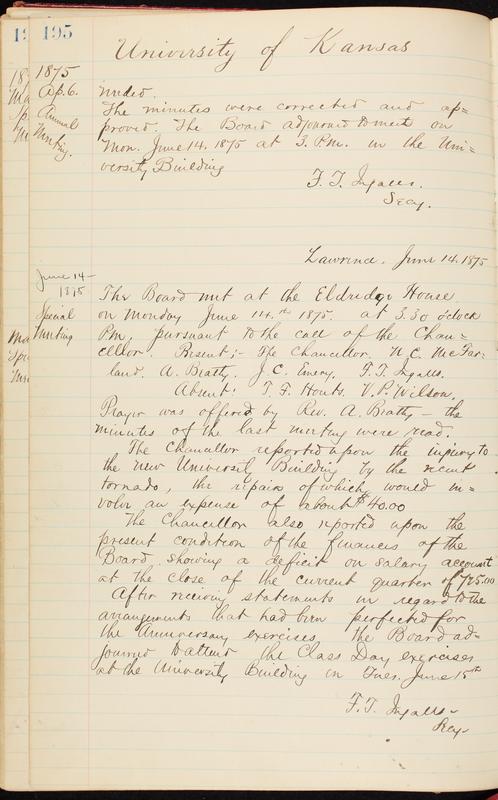 195
University of Kansas
1875
Ap. 6.
Annual
Meeting.
needed.
The minutes were corrected and ap=
proved. The Board adjourned to meet on
Mon. June 14. 1875 at 3. P.M. in the Uni=
versity Building
F. T. Ingalls.
Secy.
Lawrence. June 14. 1875
June 14 -
1875
Special
Meeting
The Board met at the Eldridge House
on Monday June 14th 1875. at 3.30 oclock
P.M. pursuant to the call of the Chan=
cellor. Present;- The Chancellor. N. C. McFar-
land. A. Beatty. J. C. Emery. F. T. Ingalls.
Absent: T. F. Houts. V. P. Wilson.
Prayer was offered by Rev. A. Beatty - the
minutes of the last meeting were read.
The Chancellor reported upon the injury to
the new University Building by the recent
tornado, the repairs of which would in=
volve an expense of about $40.00
The Chancellor also reported upon the
present condition of the finances of the
Board. showing a deficit on salary account
at the close of the current quarter of
After receiving statements in regard to the
arrangements that had been perfected for
the Anniversary exercises the Board ad-
journed to attend the Class Day exercises
at the University Building in Tues. June 15th
F. T. Ingalls -
Secy -